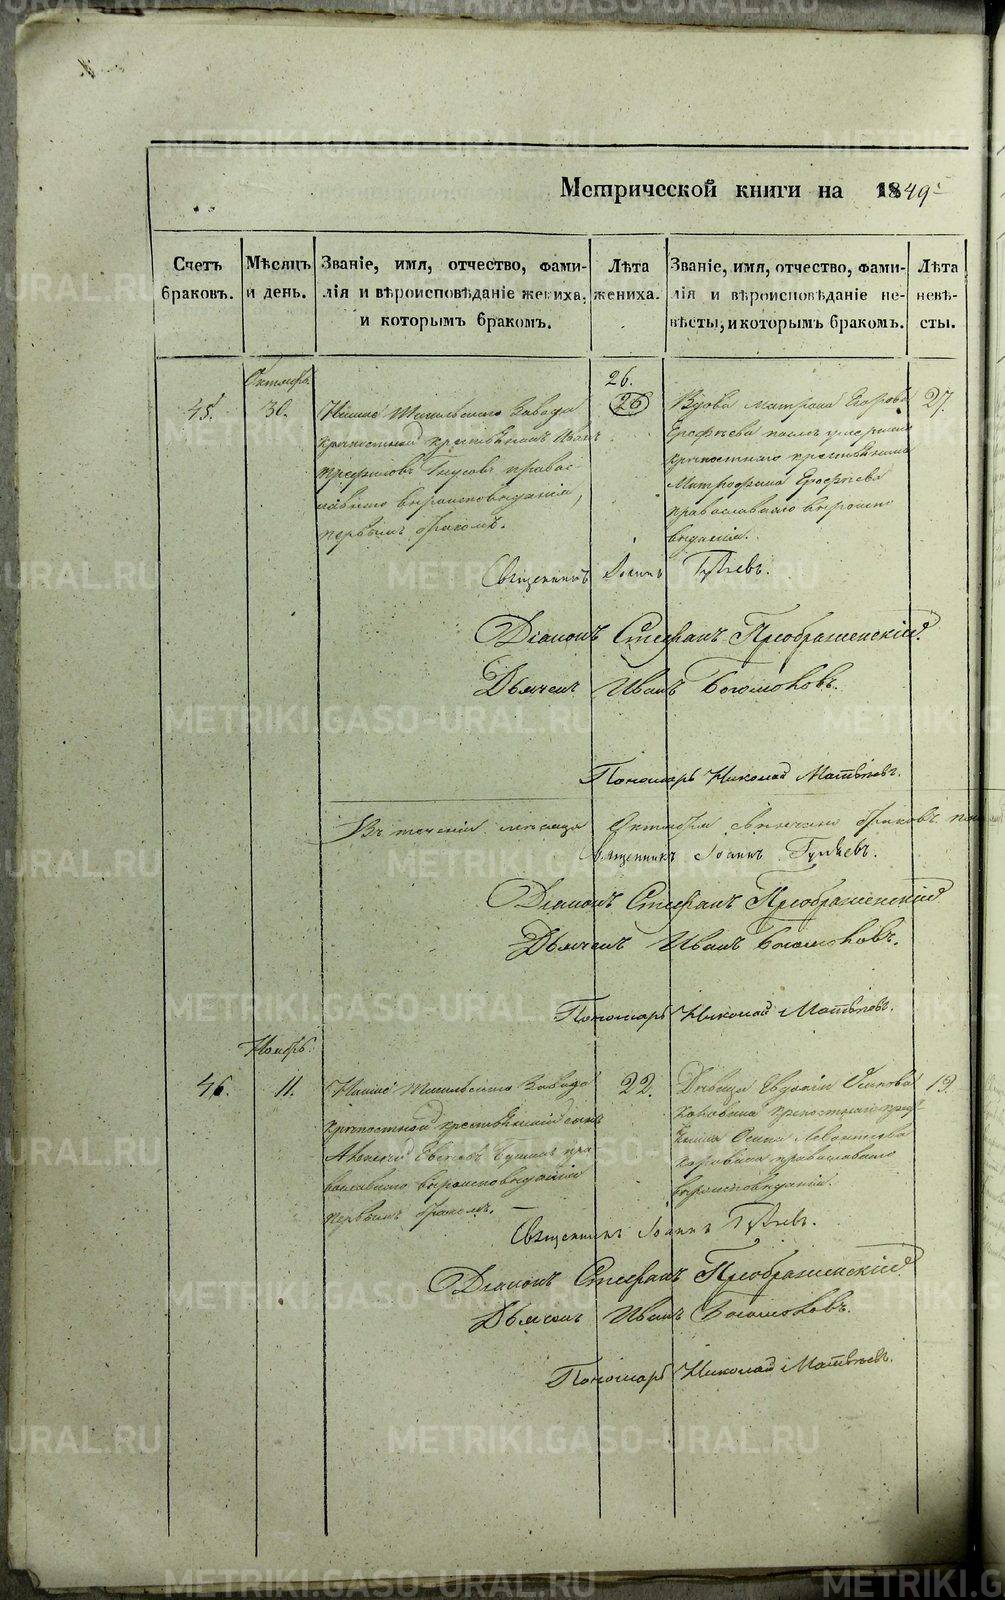 Метрической книги на 1849.
Счетъ браковъ.
Мѣсяцъ и день.
Званіе, имя, отчество, фами-
лія и вѣроисповѣданіе жениха,
и которымъ бракомъ.
Лѣта
жениха.
Званіе, имя, отчество, фами-
лія и вѣроисповѣданіе не-
вѣсты, и которымъ бракомъ.
Лѣта
невѣ-
сты.
45.
Октября
30.
Нижне Тагильскаго Завода
крѣпостной крестьянинъ Иванъ
православнаго вѣроисповѣданія,
первымъ бракомъ.
26.
26
Вдова Матрона Егорова
Ерофѣева послѣ умершаго
крѣпостнаго крестьянина
Митрофана Ерофѣева
православнаго вѣроиспо
вѣданія.
27.
Священникъ Іоаннъ
Діаконъ Стефанъ Преображенскій.
Дьячекъ Иванъ Богомоловъ.
Пономарь Николай Матвѣевъ.
Въ теченіи мѣсяца Октября браковъ
Священникъ Іоаннъ
Діаконъ Стефанъ Преображенскій
Дьячекъ Иванъ Богомоловъ.
Пономарь Николай Матвѣевъ.
46.
Ноябрь.
11.
Нижне Тагильскаго Завода
крѣпостной крестьянскій сынъ
православнаго вѣроисповѣданія
первымъ бракомъ.
22.
Дѣвица Евдокія Осипова
православнаго
вѣроисповѣданія.
19.
Священникъ Іоаннъ
Діаконъ Стефанъ Преображенскій
Дьячекъ Иванъ Богомоловъ.
Пономарь Николай Матвѣевъ.
METRIKI.GASO-URAL.RU